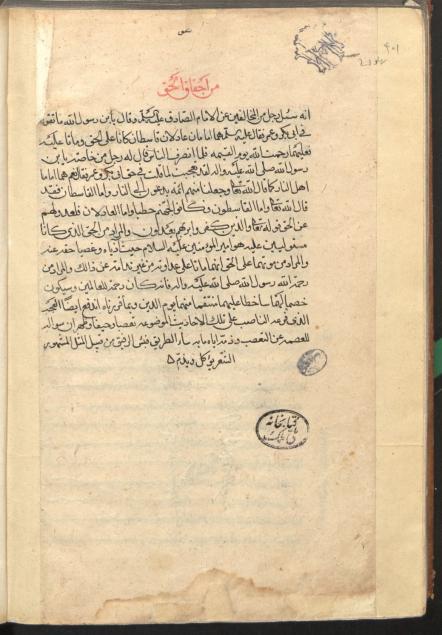 من احقاق الحق
انه سئل رجل من المخالفين عن الامام الصادق عليه السلام وقال يابن رسول الله ما تقول
في ابي بكر وعمر فقال عليه السلام هما امامان عادلان قاسطان كانا على الحق وماتا عليه
فعليهما رحمة الله يوم القيمه فلما انصرف الناس قال له رجل من خاصته يابن
رسول الله صلى الله عليه واله لقد تعجبت مما قلت في حق ابي بكر وعمر فقال نعم هما اماما
اهل النار كما قال الله تعالى وجعلنا منهم ائمة يدعون الى النار واما القاسطان فقد
قال الله تعالى واما القاسطون فكانوا لجهنم حطبا واما العادلان فلعدولهم
عن الحق قوله تعالى والذين كفروا بربهم يعدلون والمراد من الحق الذي كانا
مستوليين عليه هو امير المؤمنين عليه السلام حيث اذياه وغصبا حقه عنه
والمراد من موتهما على الحق انهما ماتا على عداوته من غير ندامة عن ذلك والمراد من
رحمة الله رسول الله صلى الله عليه واله فانه كان رحمة للعالمين وسيكون
خصما لهما ساخطا عليهما منتقما منهما يوم الدين وبما قررناه اندفع ايضا التعجب
الذي فرعه الناصب على تلك الاحاديث الموضوعه تعصبا وحيفا وظهر ان سؤاله
للعصمة عن التعصب
كتابخانه